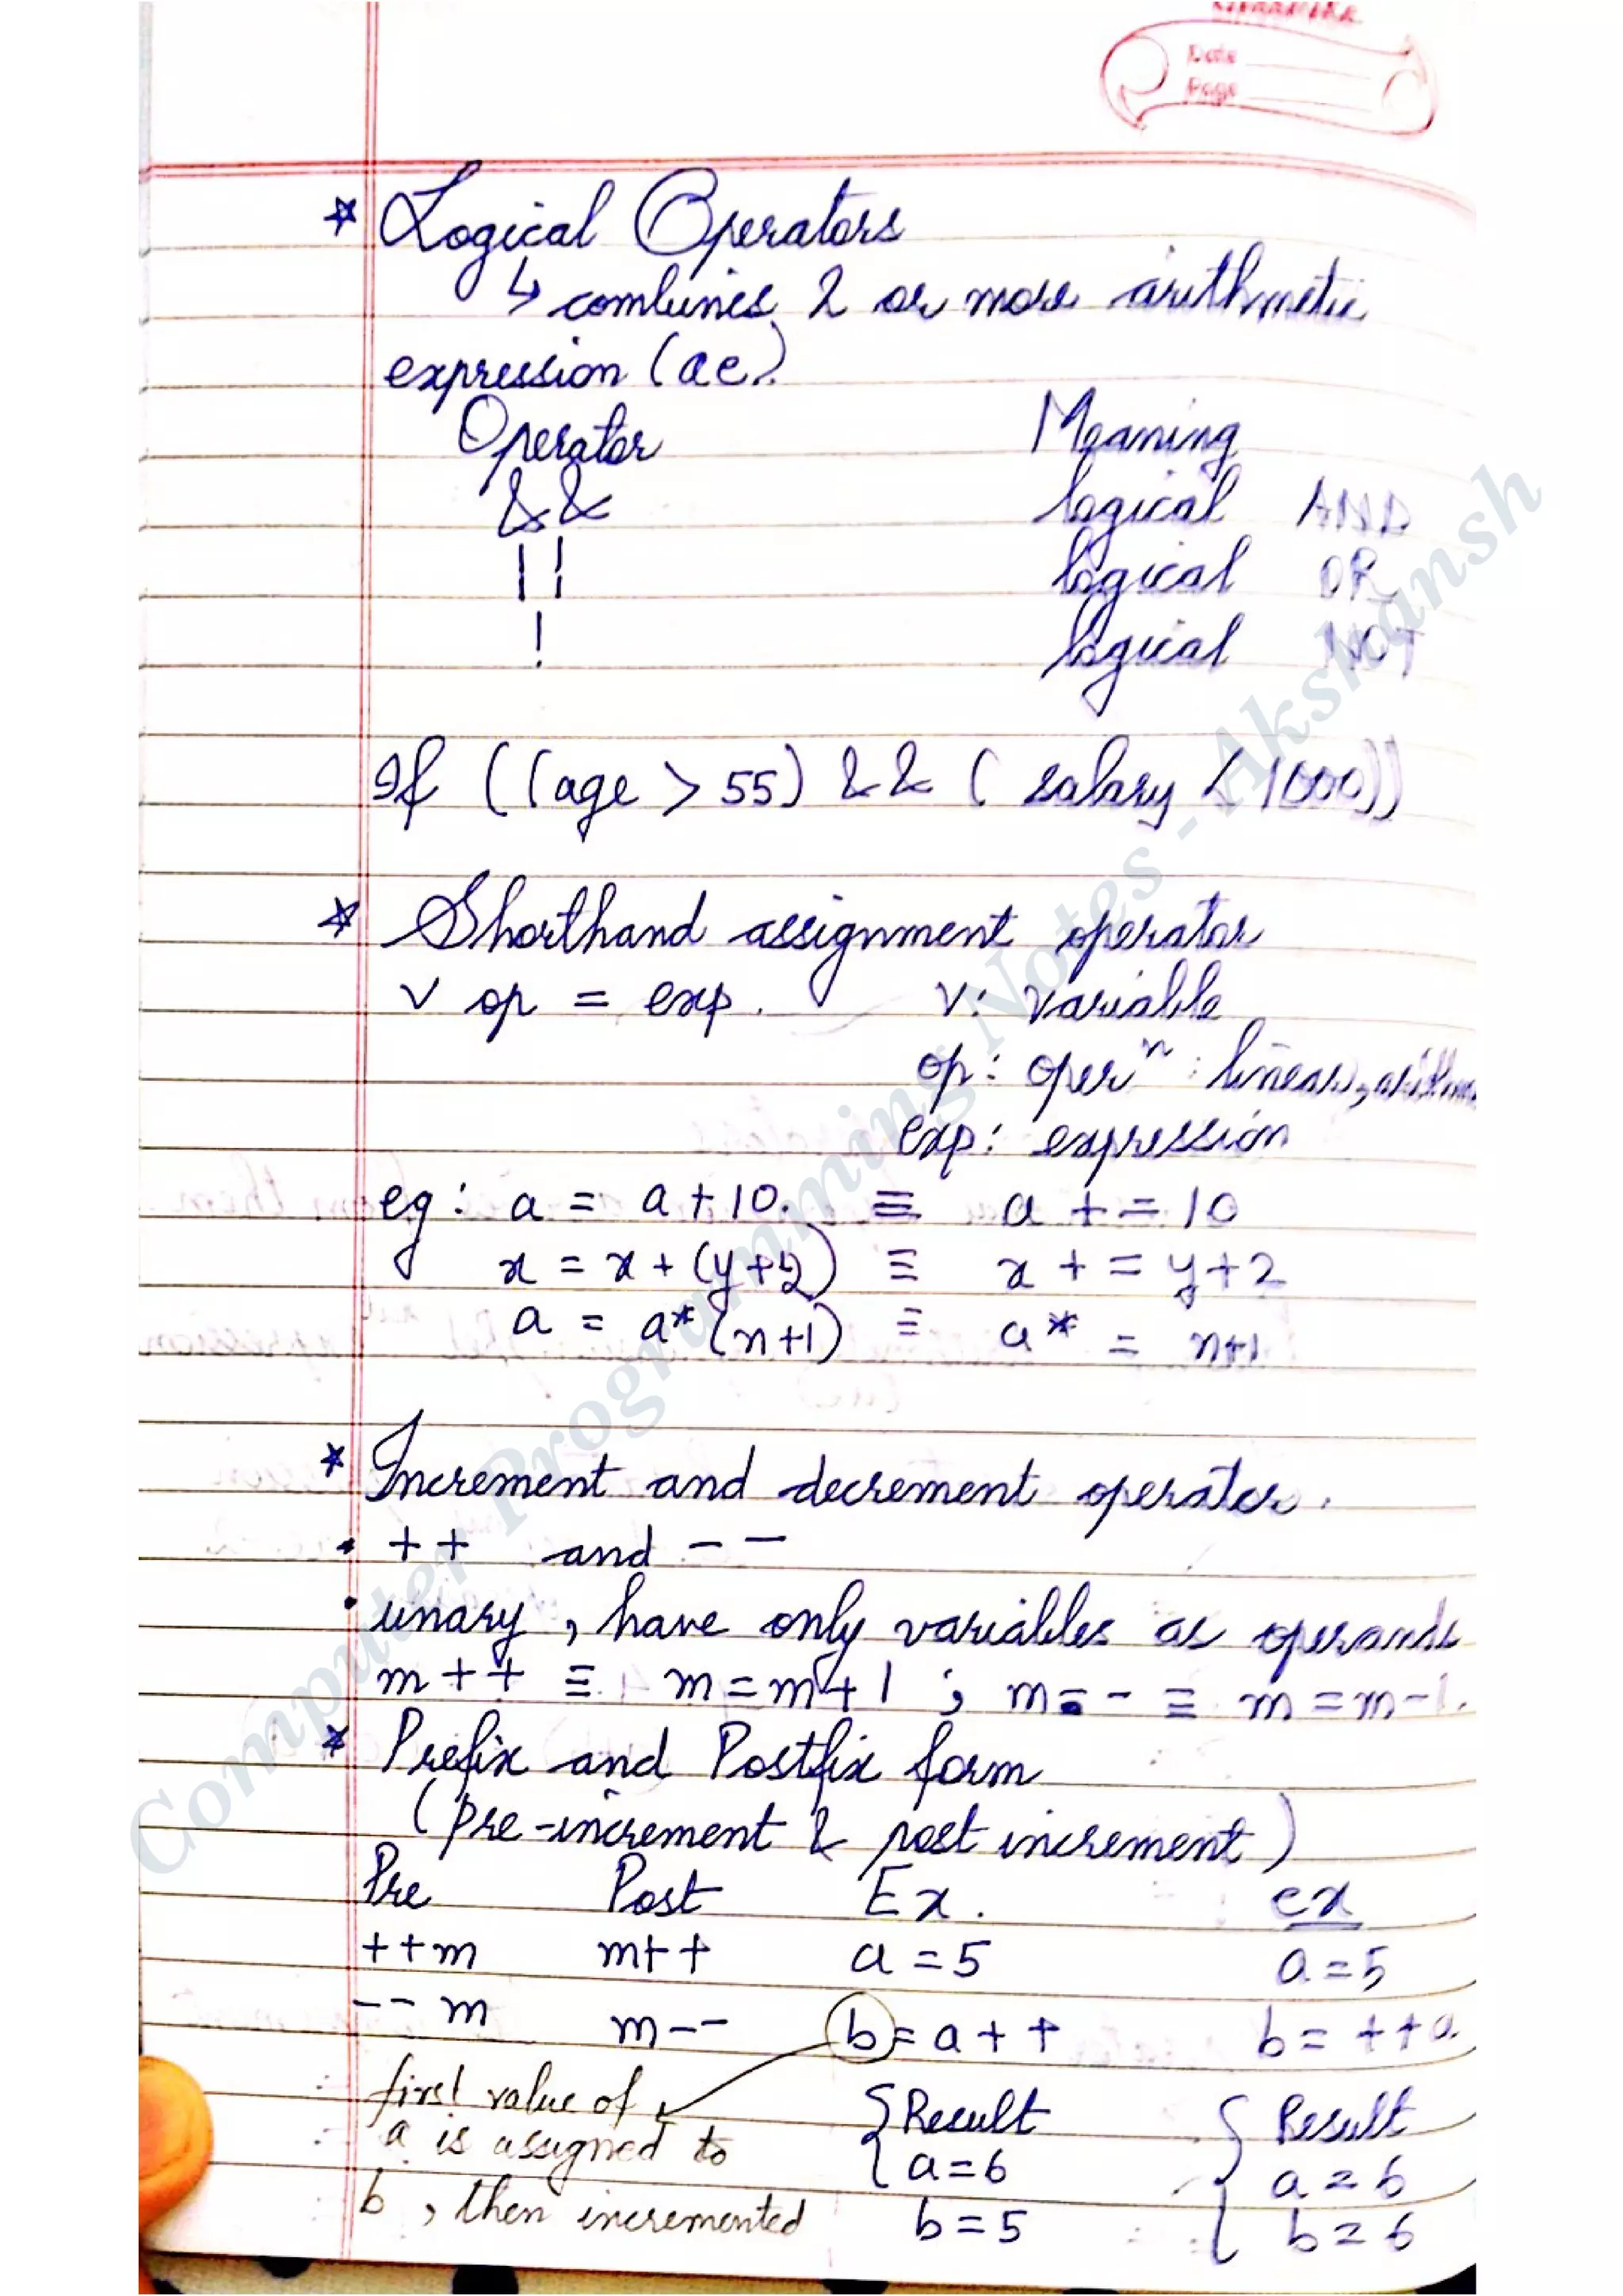 Date
Page
* Logical Operators
↳ combines 2 or more arithmetic
expression (ae).
Operator Meaning
&& logical AND
|| logical OR
! logical NOT
If ((age > 55) && ( salary < 1000))
* Shorthand assignment operator
v op = exp. v: variable
op: operⁿ : linear,
exp: expression
eg: a = a+10. ≡ a += 10
x = x + (y+2) ≡ x += y+2
a = a*(n+1) ≡ a* = n+1
* Increment and decrement operator.
• ++ and --
• unary, have only variables as operands
m++ ≡ m=m+1 ; m-- ≡ m=m-1.
* Prefix and Postfix form
(pre-increment & post increment)
Pre Post Ex. ex
++m m++ a=5 a=5
--m m-- b=a++ b=++a
first value of { Result { Result
a is assigned to a=6 a=6
b, then incremented b=5 b=6
Computer Programming Notes - Akshansh